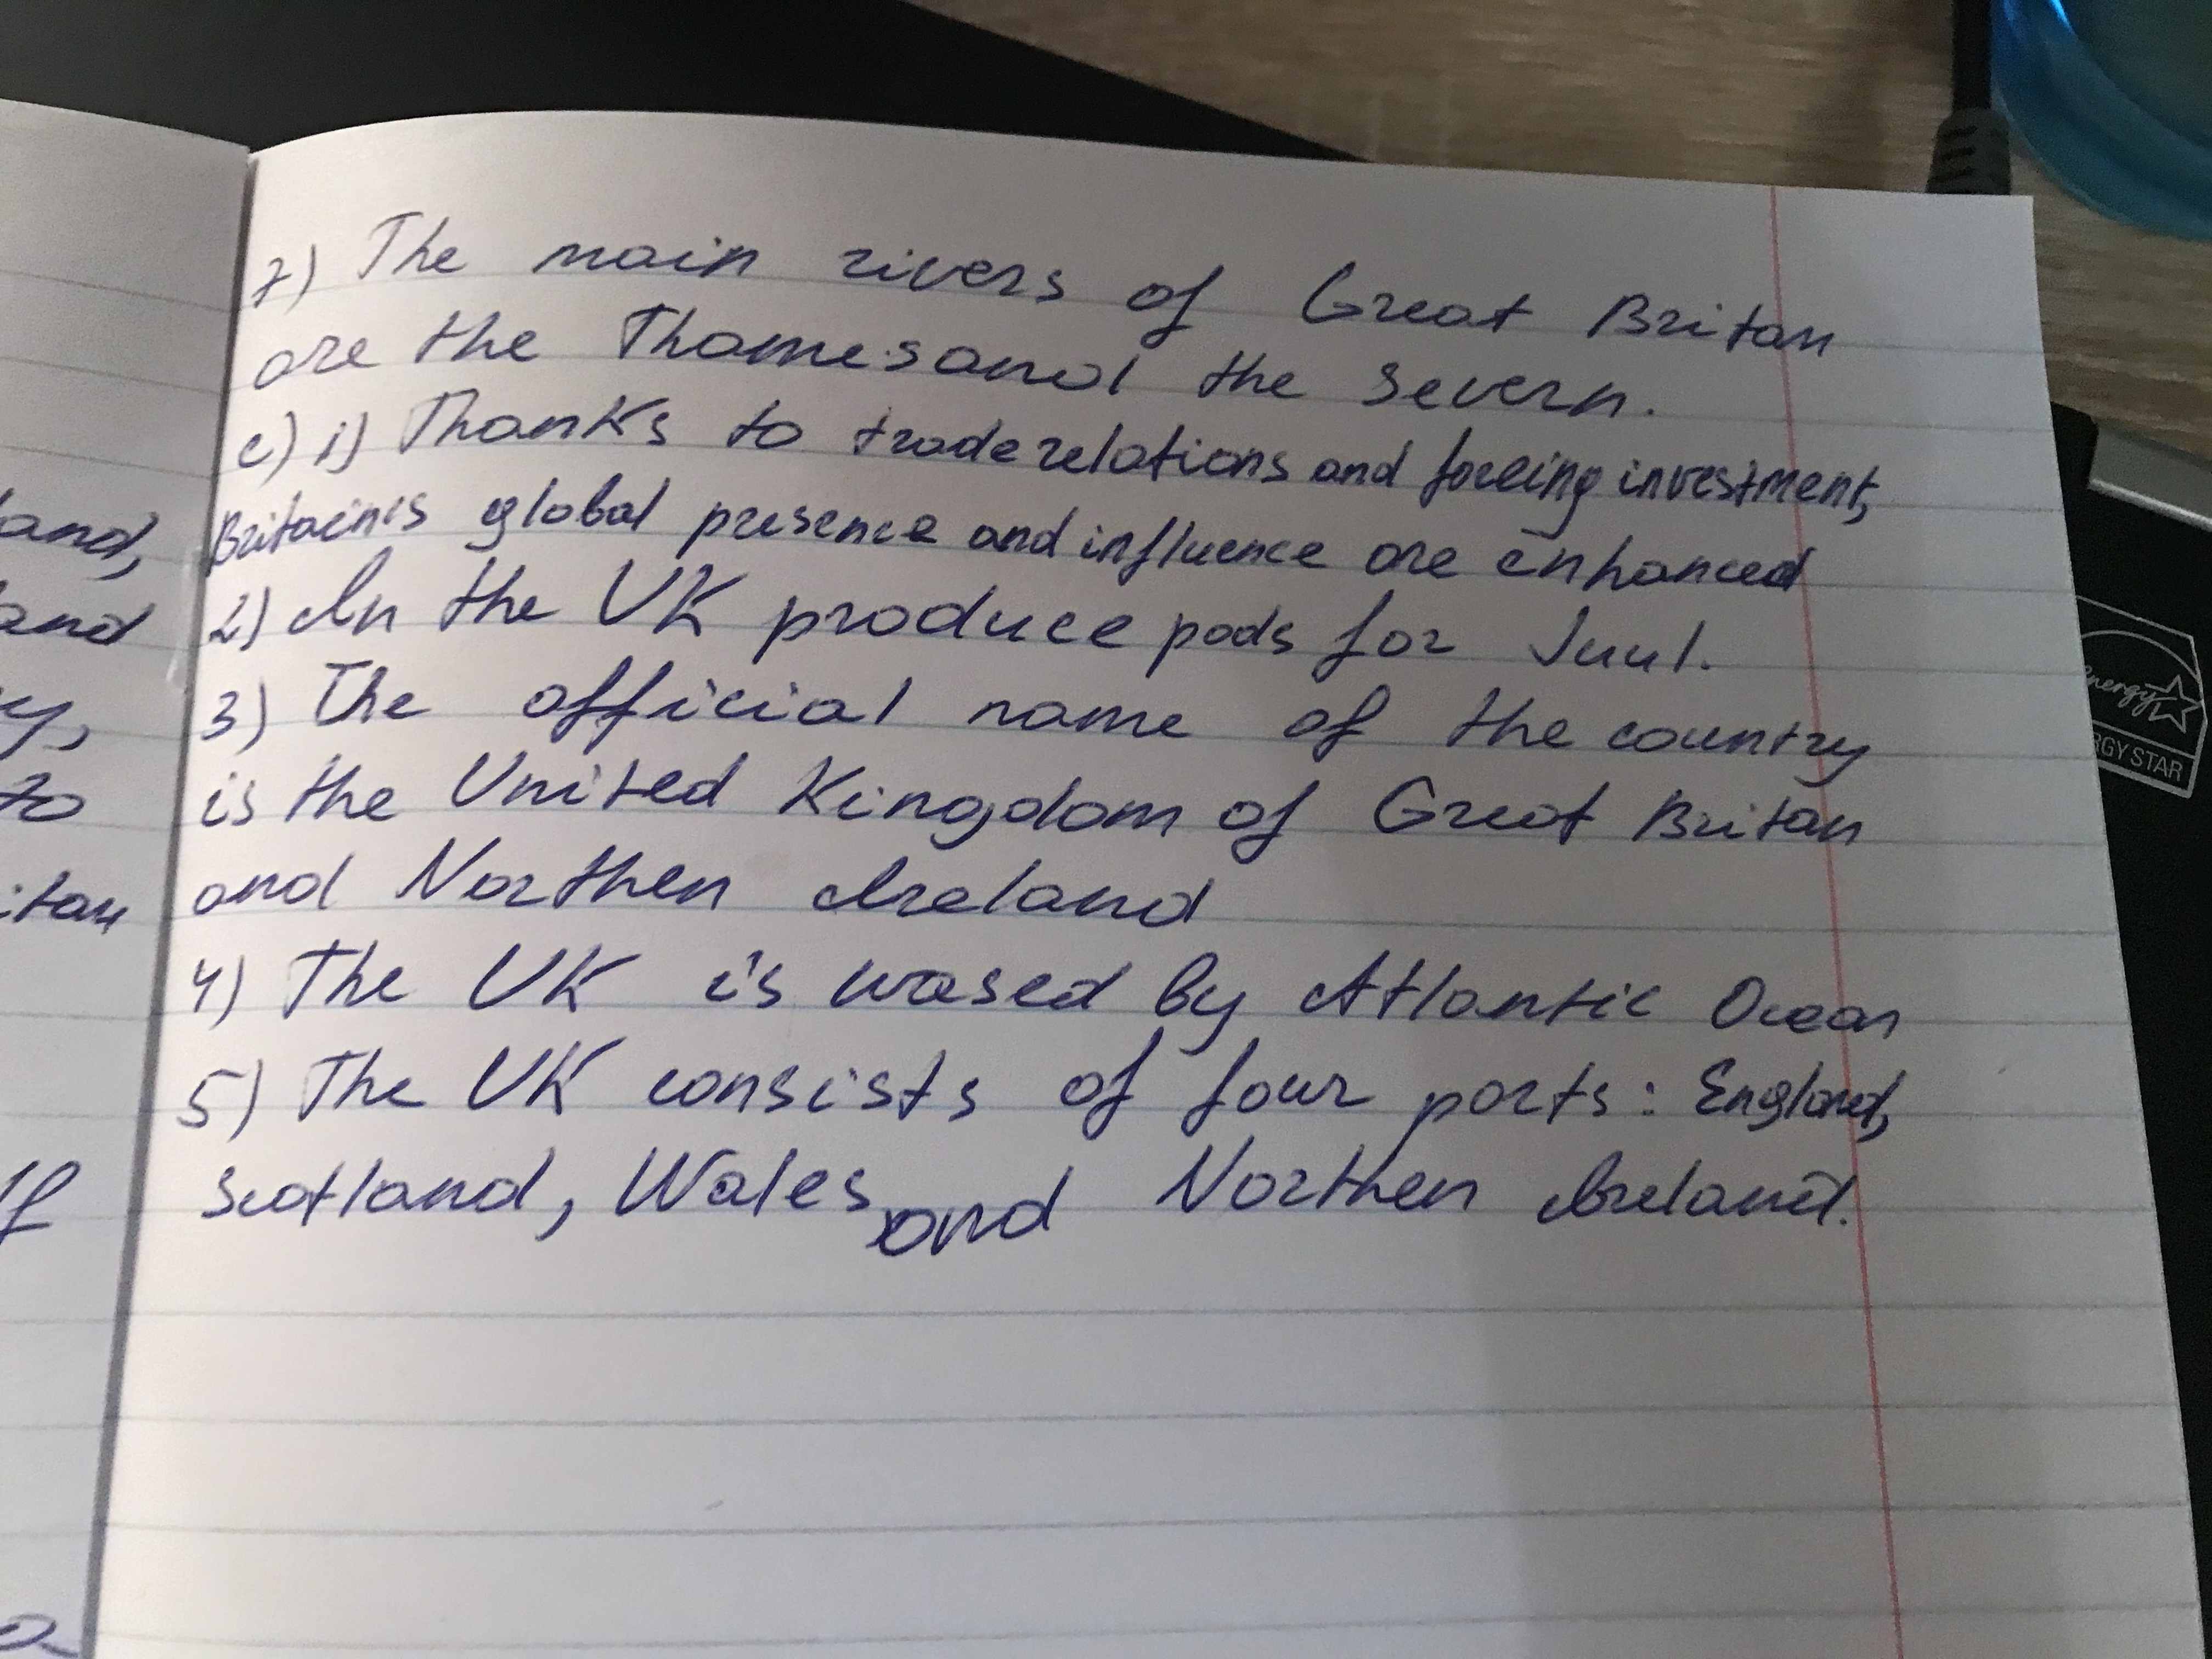 land,
land
y,
to
itan
If
7) The main rivers of Great Britan
are the Thames and the Severn.
c) 1) Thanks to trade relations and foreing investment,
Britain's global presence and influence are enhanced
2) In the UK produce pods for Juul.
3) The official name of the country
is the United Kingdom of Great Britan
and Northen Ireland
4) The UK is wased by Atlantic Ocean
5) The UK consists of four parts: England,
Scotland, Wales and Northen Ireland.
energy
RGY STAR